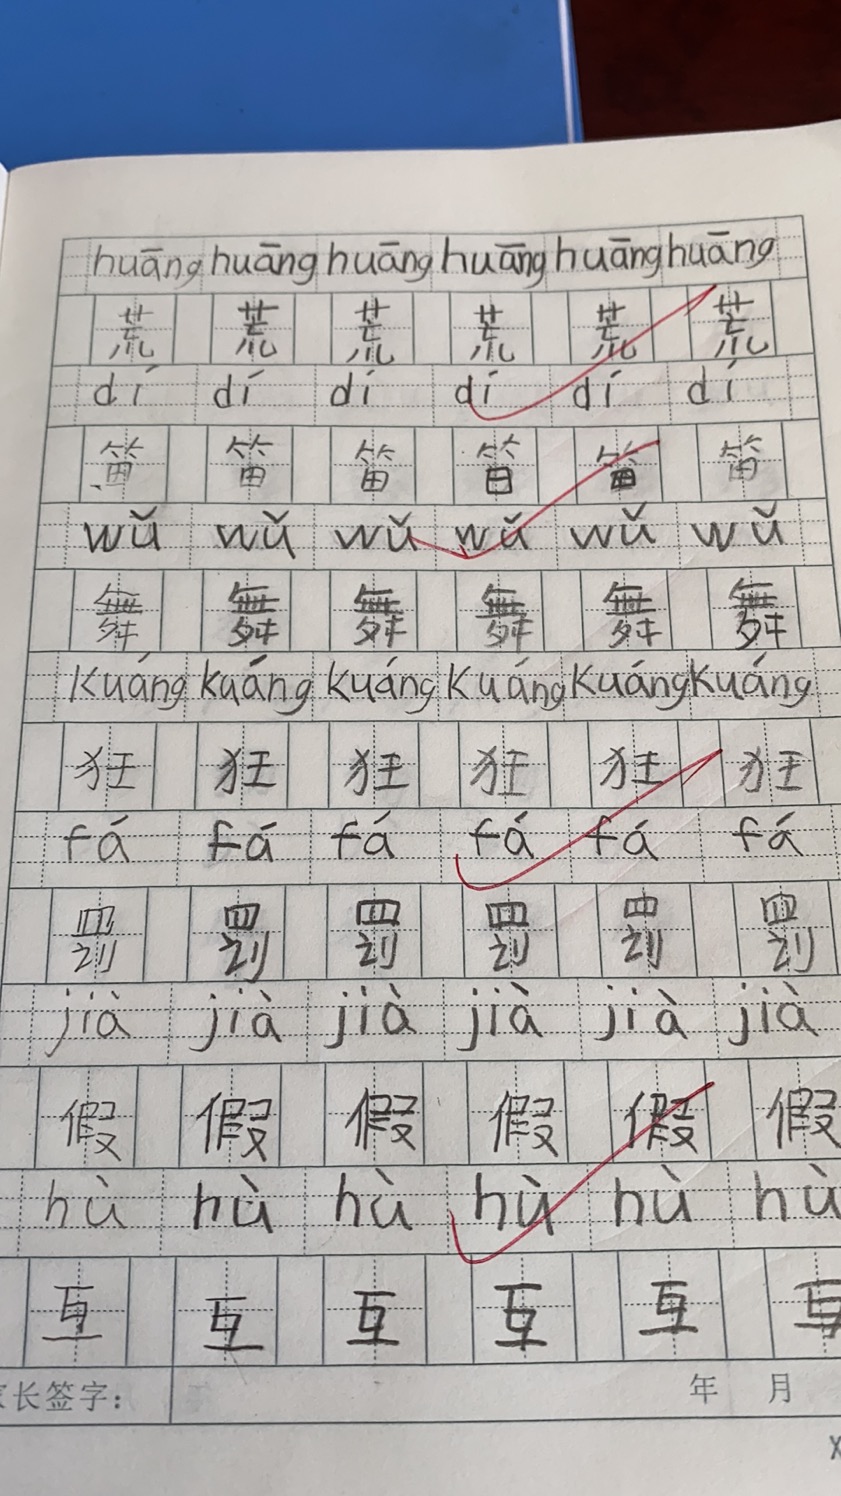 huāng huāng huāng huāng huāng huāng
荒 荒 荒 荒 荒 荒
dí dí dí dí dí dí
笛 笛 笛 笛 笛 笛
wǔ wǔ wǔ wǔ wǔ wǔ
舞 舞 舞 舞 舞 舞
kuáng kuáng kuáng kuáng kuáng kuáng
狂 狂 狂 狂 狂 狂
fá fá fá fá fá fá
罚 罚 罚 罚 罚 罚
jià jià jià jià jià jià
假 假 假 假 假 假
hù hù hù hù hù hù
互 互 互 互 互 互
家长签字： 年 月